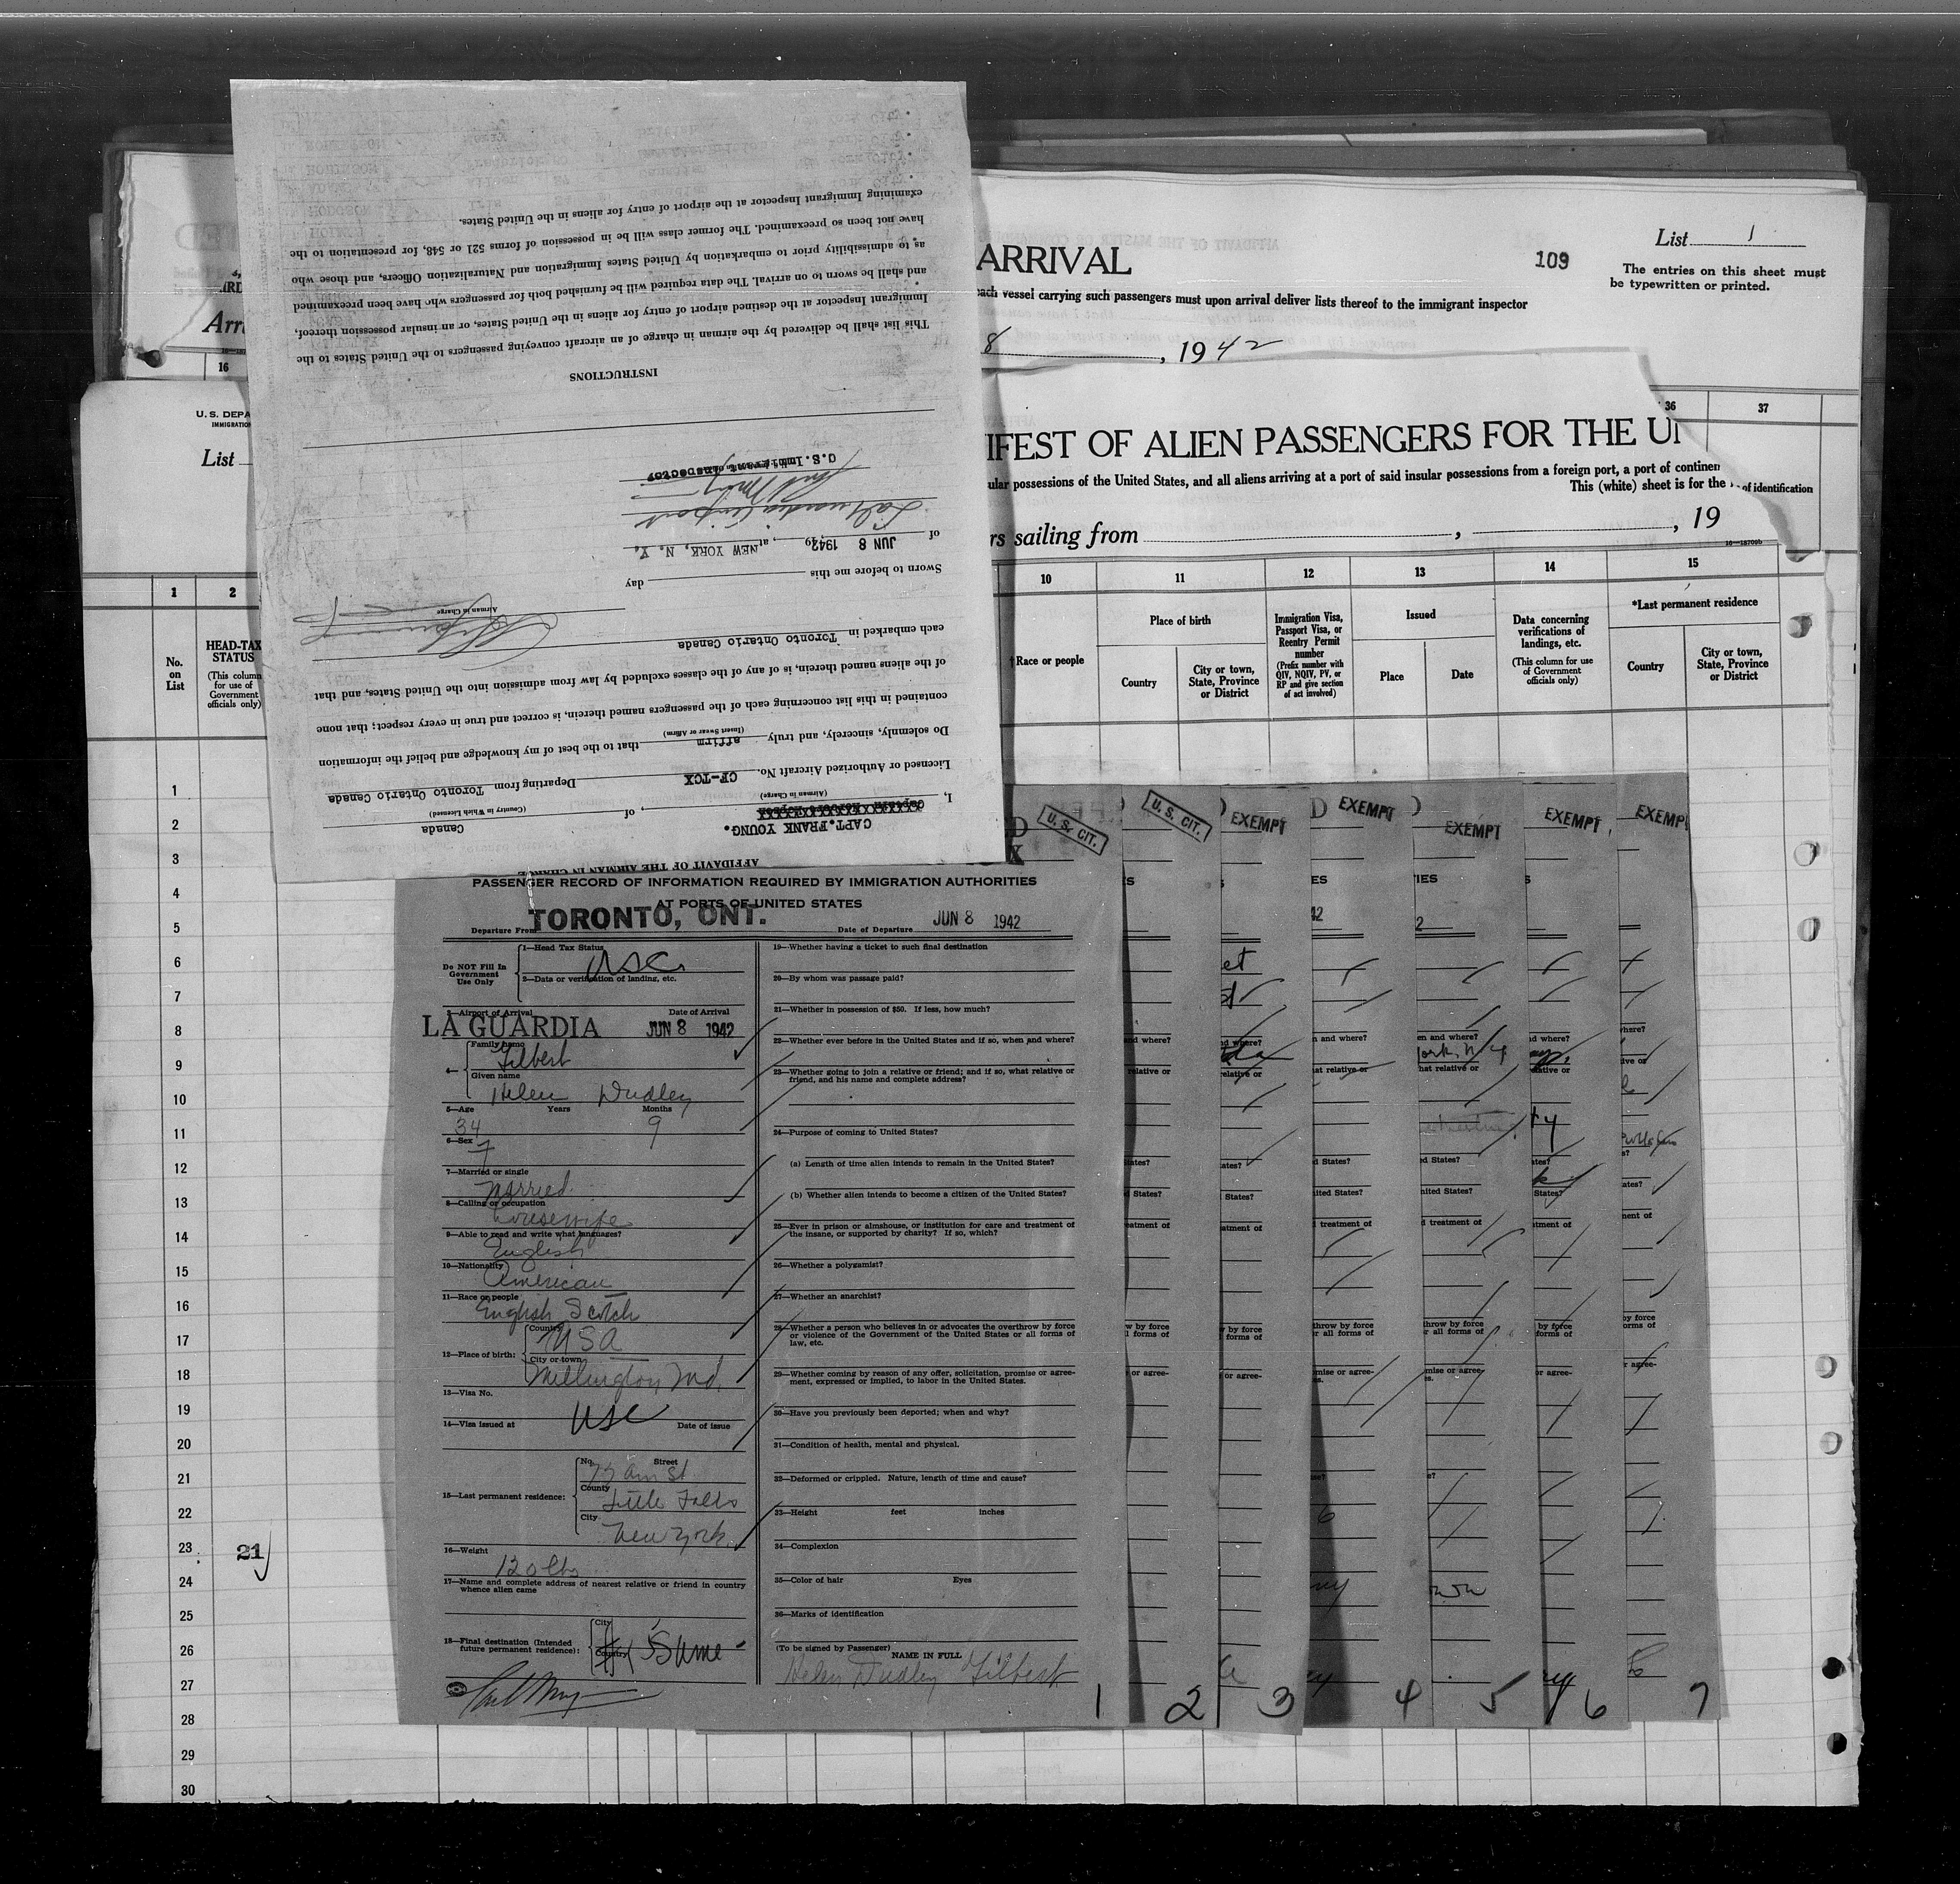 ARRIVAL
109
List 1
The entries on this sheet must
be typewritten or printed.
each vessel carrying such passengers must upon arrival deliver lists thereof to the immigrant inspector
8, 1942
16
36
37
U. S. DEPA
IMMIGRATION
List
IFEST OF ALIEN PASSENGERS FOR THE UN
ular possessions of the United States, and all aliens arriving at a port of said insular possessions from a foreign port, a port of continen
This (white) sheet is for the
of identification
rs sailing from , , 19
1
2
10
11
12
13
14
15
No.
on
List
HEAD-TAX
STATUS
(This column
for use of
Government
officials only)
†Race or people
Place of birth
Country
City or town,
State, Province
or District
Immigration Visa,
Passport Visa, or
Reentry Permit
number
(Prefix number with
QIV, NQIV, PV, or
RP and give section
of act involved)
Issued
Place
Date
Data concerning
verifications of
landings, etc.
(This column for use
of Government
officials only)
*Last permanent residence
Country
City or town,
State, Province
or District
1
2
3
4
5
6
7
8
9
10
11
12
13
14
15
16
17
18
19
20
21
22
23
24
25
26
27
28
29
30
21
AFFIDAVIT OF THE AIRMAN IN CHARGE
CAPT. FRANK YOUNG.
I, , of Canada
(Airman in Charge)
(Country in Which Licensed)
Licensed or Authorized Aircraft No. CF-TCX Departing from Toronto Ontario Canada
Do solemnly, sincerely, and truly affirm that to the best of my knowledge and belief the information
(Insert Swear or Affirm)
contained in this list concerning each of the passengers named therein, is correct and true in every respect; that none
of the aliens named therein, is of any of the classes excluded by law from admission into the United States, and that
each embarked in Toronto Ontario Canada
Airman in Charge
Sworn to before me this day
of JUN 8 1942, at NEW YORK, N. Y.
LaGuardia Airport
U.S. Immigrant Inspector
INSTRUCTIONS
This list shall be delivered by the airman in charge of an aircraft conveying passengers to the United States to the
Immigrant Inspector at the destined airport of entry for aliens in the United States, or an insular possession thereof,
and shall be sworn to on arrival. The data required will be furnished both for passengers who have been preexamined
as to admissibility prior to embarkation by United States Immigration and Naturalization Officers, and those who
have not been so preexamined. The former class will be in possession of forms 521 or 548, for presentation to the
examining Immigrant Inspector at the airport of entry for aliens in the United States.
U. S. CIT.
U. S. CIT.
EXEMPT
EXEMPT
EXEMPT
EXEMPT
EXEMPT
PASSENGER RECORD OF INFORMATION REQUIRED BY IMMIGRATION AUTHORITIES
AT PORTS OF UNITED STATES
Departure From TORONTO, ONT.
Date of Departure JUN 8 1942
Do NOT Fill In
Government
Use Only
1—Head Tax Status
USC
2—Data or verification of landing, etc.
3—Airport of Arrival
Date of Arrival
LA GUARDIA JUN 8 1942
4—
Family name
Gilbert
Given name
Helen Dudley
5—Age Years Months
34 9
6—Sex
F
7—Married or single
Married
8—Calling or occupation
Housewife
9—Able to read and write what languages?
English
10—Nationality
American
11—Race or people
English Scotch
12—Place of birth:
Country
USA
City or town
Millington Md.
13—Visa No.
14—Visa issued at
USC
Date of issue
15—Last permanent residence:
No. Street
73 Ann St
County
Little Falls
City
New York
16—Weight
120 lbs
17—Name and complete address of nearest relative or friend in country
whence alien came
18—Final destination (Intended
future permanent residence):
City
Country
Same
19—Whether having a ticket to such final destination
20—By whom was passage paid?
21—Whether in possession of $50. If less, how much?
22—Whether ever before in the United States and if so, when and where?
23—Whether going to join a relative or friend; and if so, what relative or
friend, and his name and complete address?
24—Purpose of coming to United States?
(a) Length of time alien intends to remain in the United States?
(b) Whether alien intends to become a citizen of the United States?
25—Ever in prison or almshouse, or institution for care and treatment of
the insane, or supported by charity? If so, which?
26—Whether a polygamist?
27—Whether an anarchist?
28—Whether a person who believes in or advocates the overthrow by force
or violence of the Government of the United States or all forms of
law, etc.
29—Whether coming by reason of any offer, solicitation, promise or agree-
ment, expressed or implied, to labor in the United States.
30—Have you previously been deported; when and why?
31—Condition of health, mental and physical.
32—Deformed or crippled. Nature, length of time and cause?
33—Height feet inches
34—Complexion
35—Color of hair Eyes
36—Marks of identification
(To be signed by Passenger)
NAME IN FULL
Helen Dudley Gilbert
1
2
3
4
5
6
7